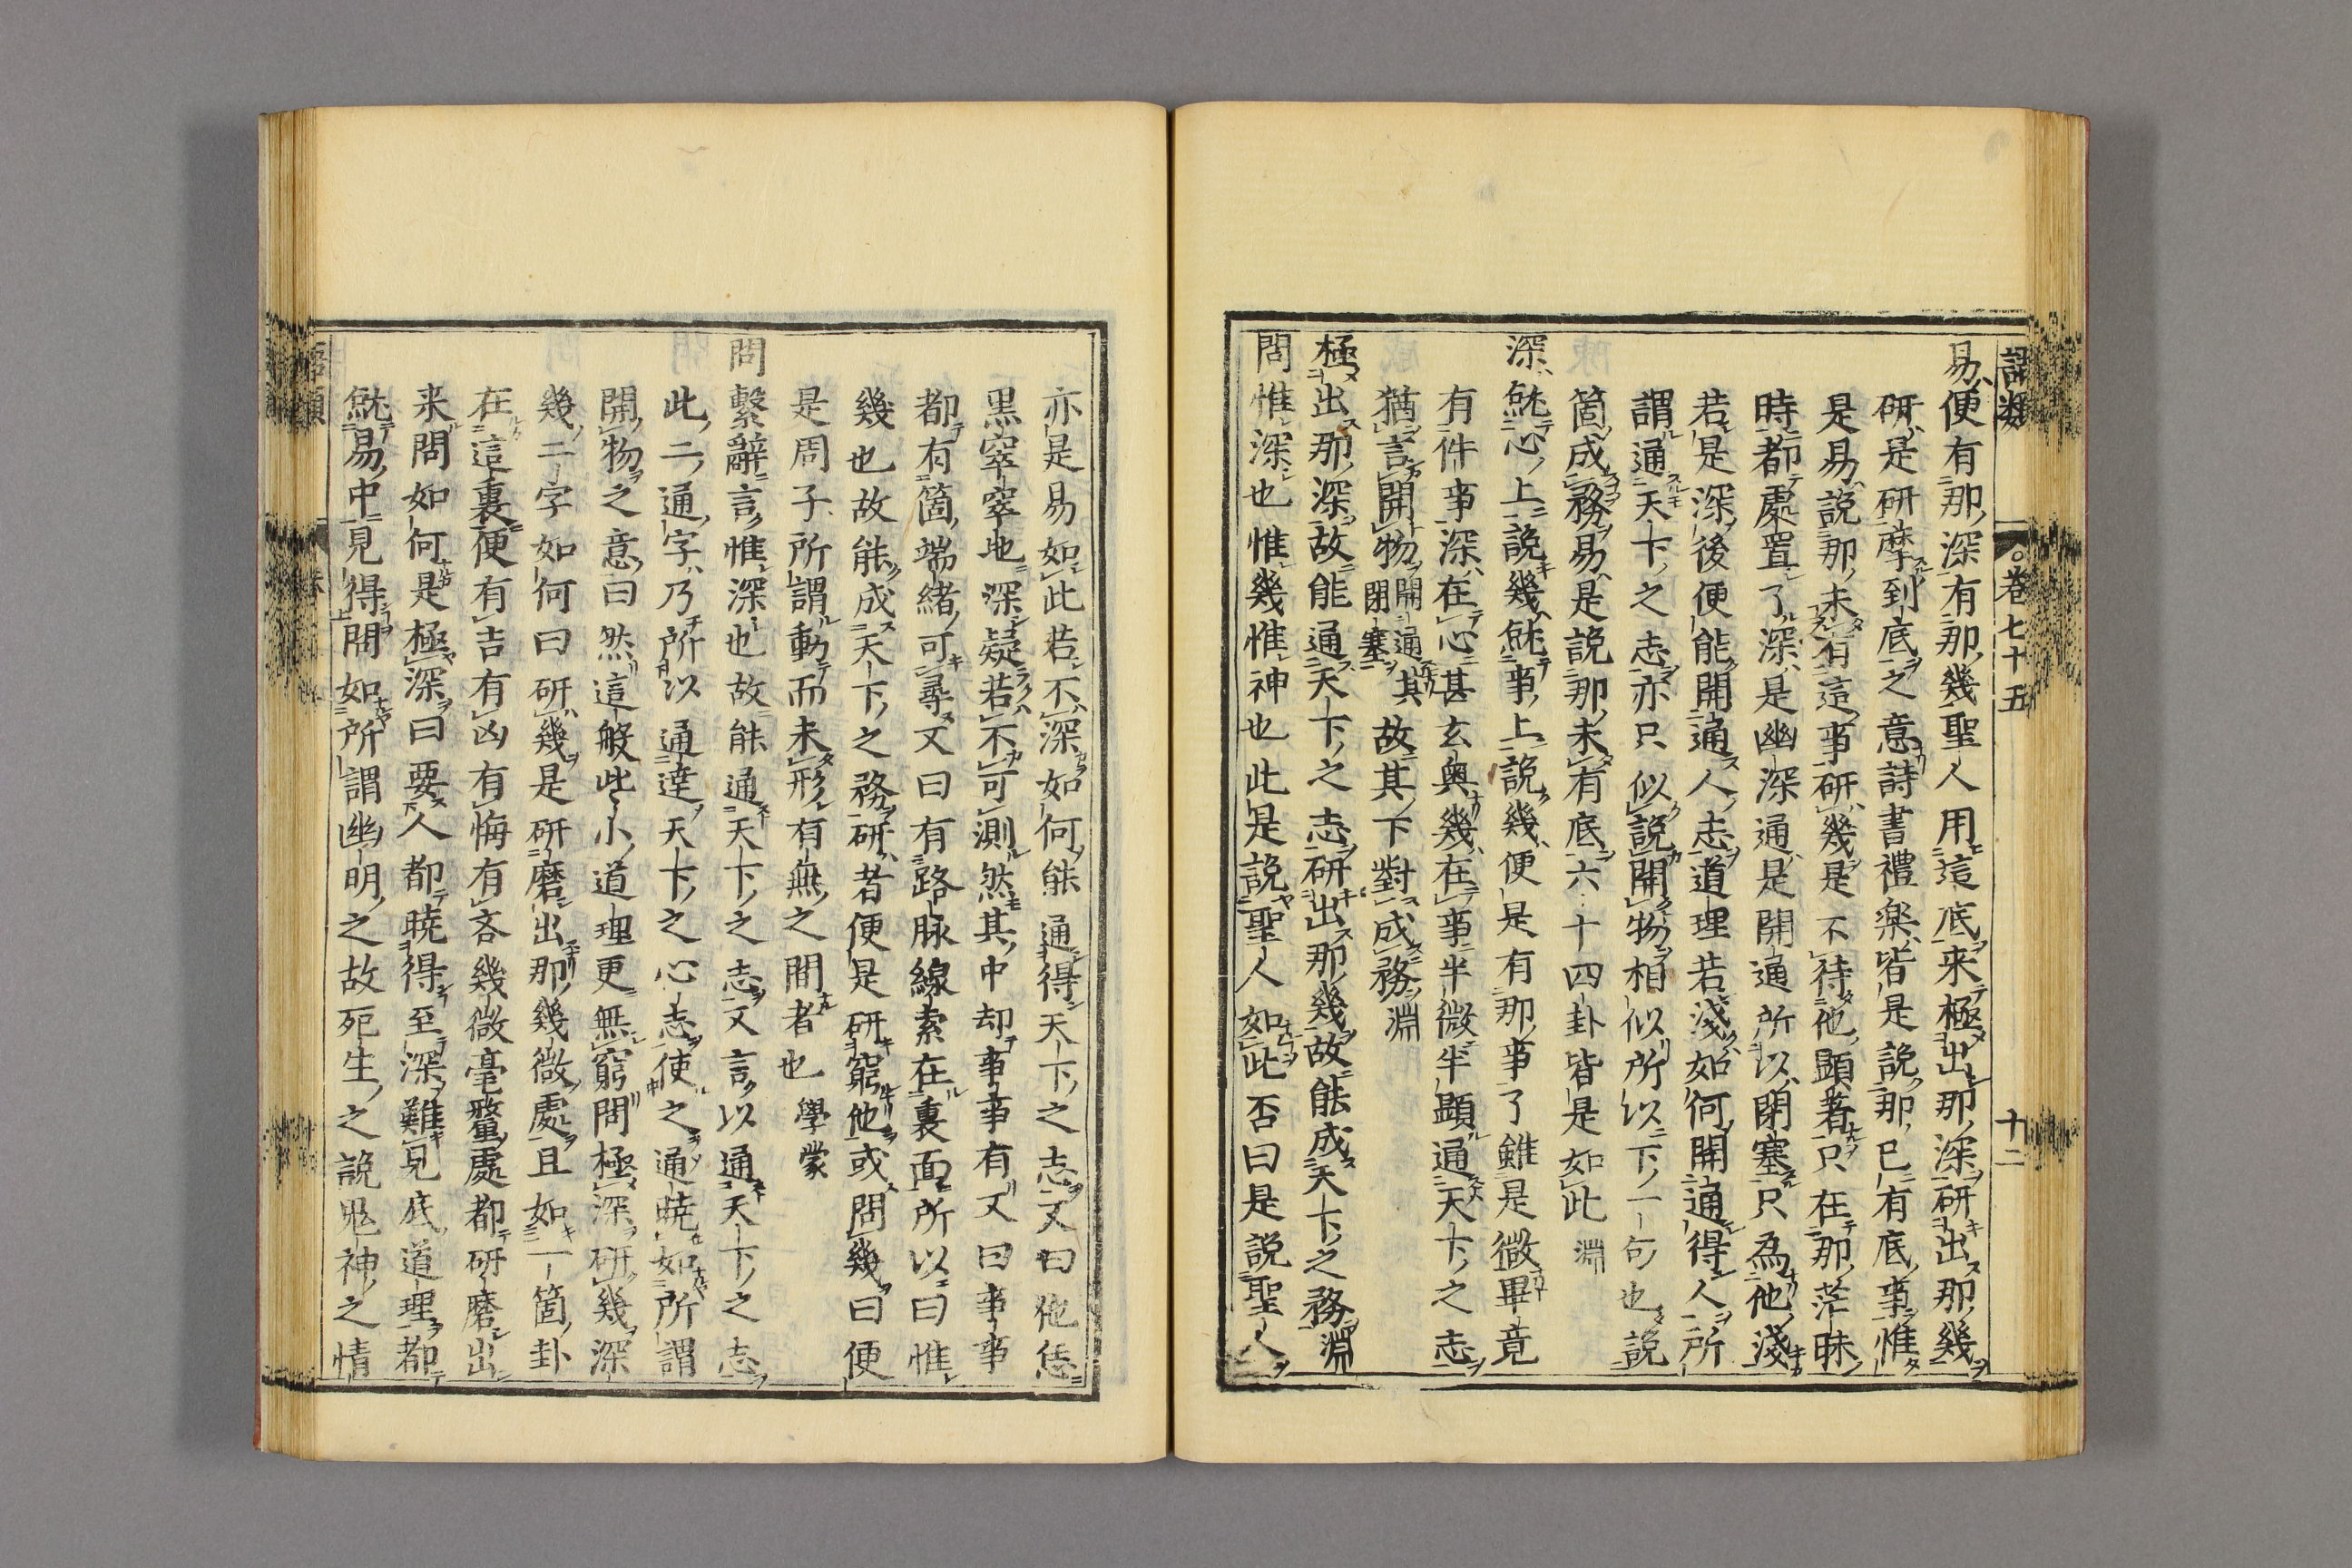 語類 卷七十五 十二
易便有那深有那幾聖人用這底来極出那深研出那幾
研是研摩到底之意詩書禮楽皆是説那已有底事惟
是易説那未有這事研幾是不待他顕著只在那茫昧
時都處置了深是幽深通是開通所以閉塞只為他淺
若是深後便能開通人志道理若淺如何開通得人所
謂通天下之志亦只似説開物相似所以下一句也説
箇成務易是説那未有底六十四卦皆是如此淵
深就心上説幾就事上説幾便是有那事了雖是微畢竟
有件事深在心甚玄奥幾在事半微半顕通天下之志
猶言開物開通其閉塞故其下對成務淵
極出那深故能通天下之志研出那幾故能成天下之務淵
問惟深也惟幾惟神也此是説聖人如此否曰是説聖人
亦是易如此若不深如何能通得天下之志又曰他恁
黒窣窣地深疑若不可測然其中却事事有又曰事事
都有箇端緒可尋又曰有路脉線索在裏面所以曰惟
幾也故能成天下之務研者便是研窮他或問幾曰便
是周子所謂動而未形有無之間者也學蒙
問繫辭言惟深也故能通天下之志又言以通天下之志
此二通字乃所以通達天下之心志使之通暁如所謂
開物之意曰然這般些小道理更無窮問極深研幾深
幾二字如何曰研幾是研磨出那幾微處且如一箇卦
在這裏便有吉有凶有悔有吝幾微毫釐處都研磨出
来問如何是極深曰要人都暁得至深難見底道理都
就易中見得問如所謂幽明之故死生之説鬼神之情